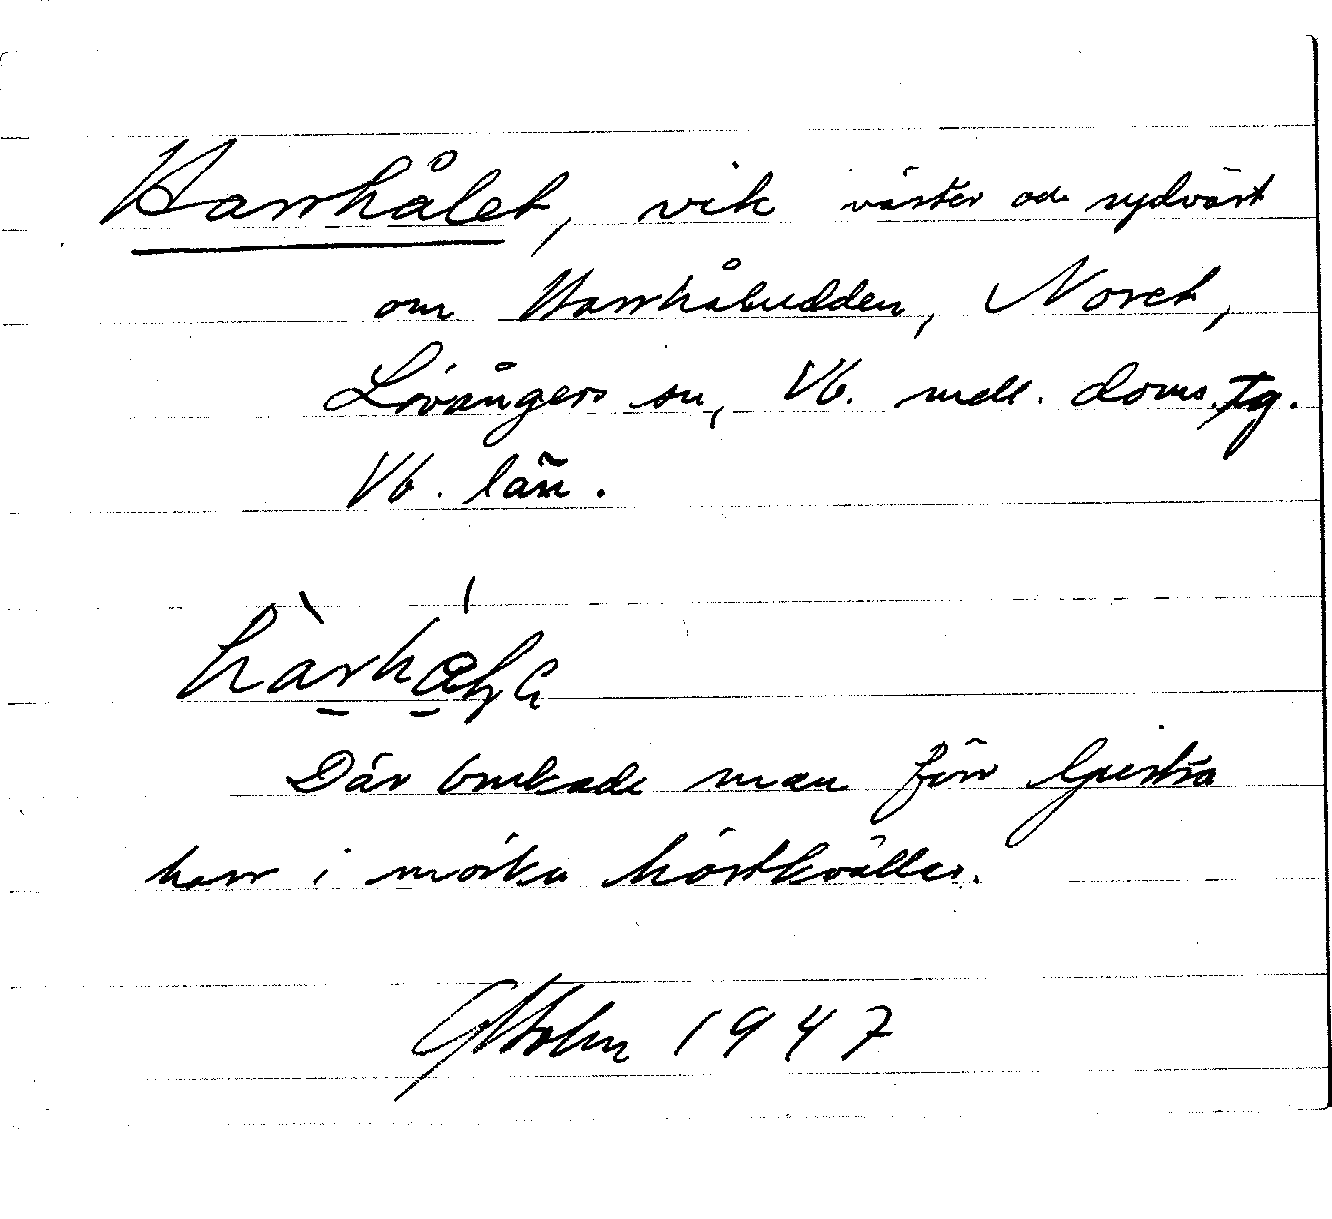 Harrhålet, vik väster och sydväst
om Harrhåludden, Noret,
Lövångers sn, Vb. mell. doms.tg.
Vb. län.
Där brukade man förr ljustra
harr i mörka höstkvällar.
GHolm 1947